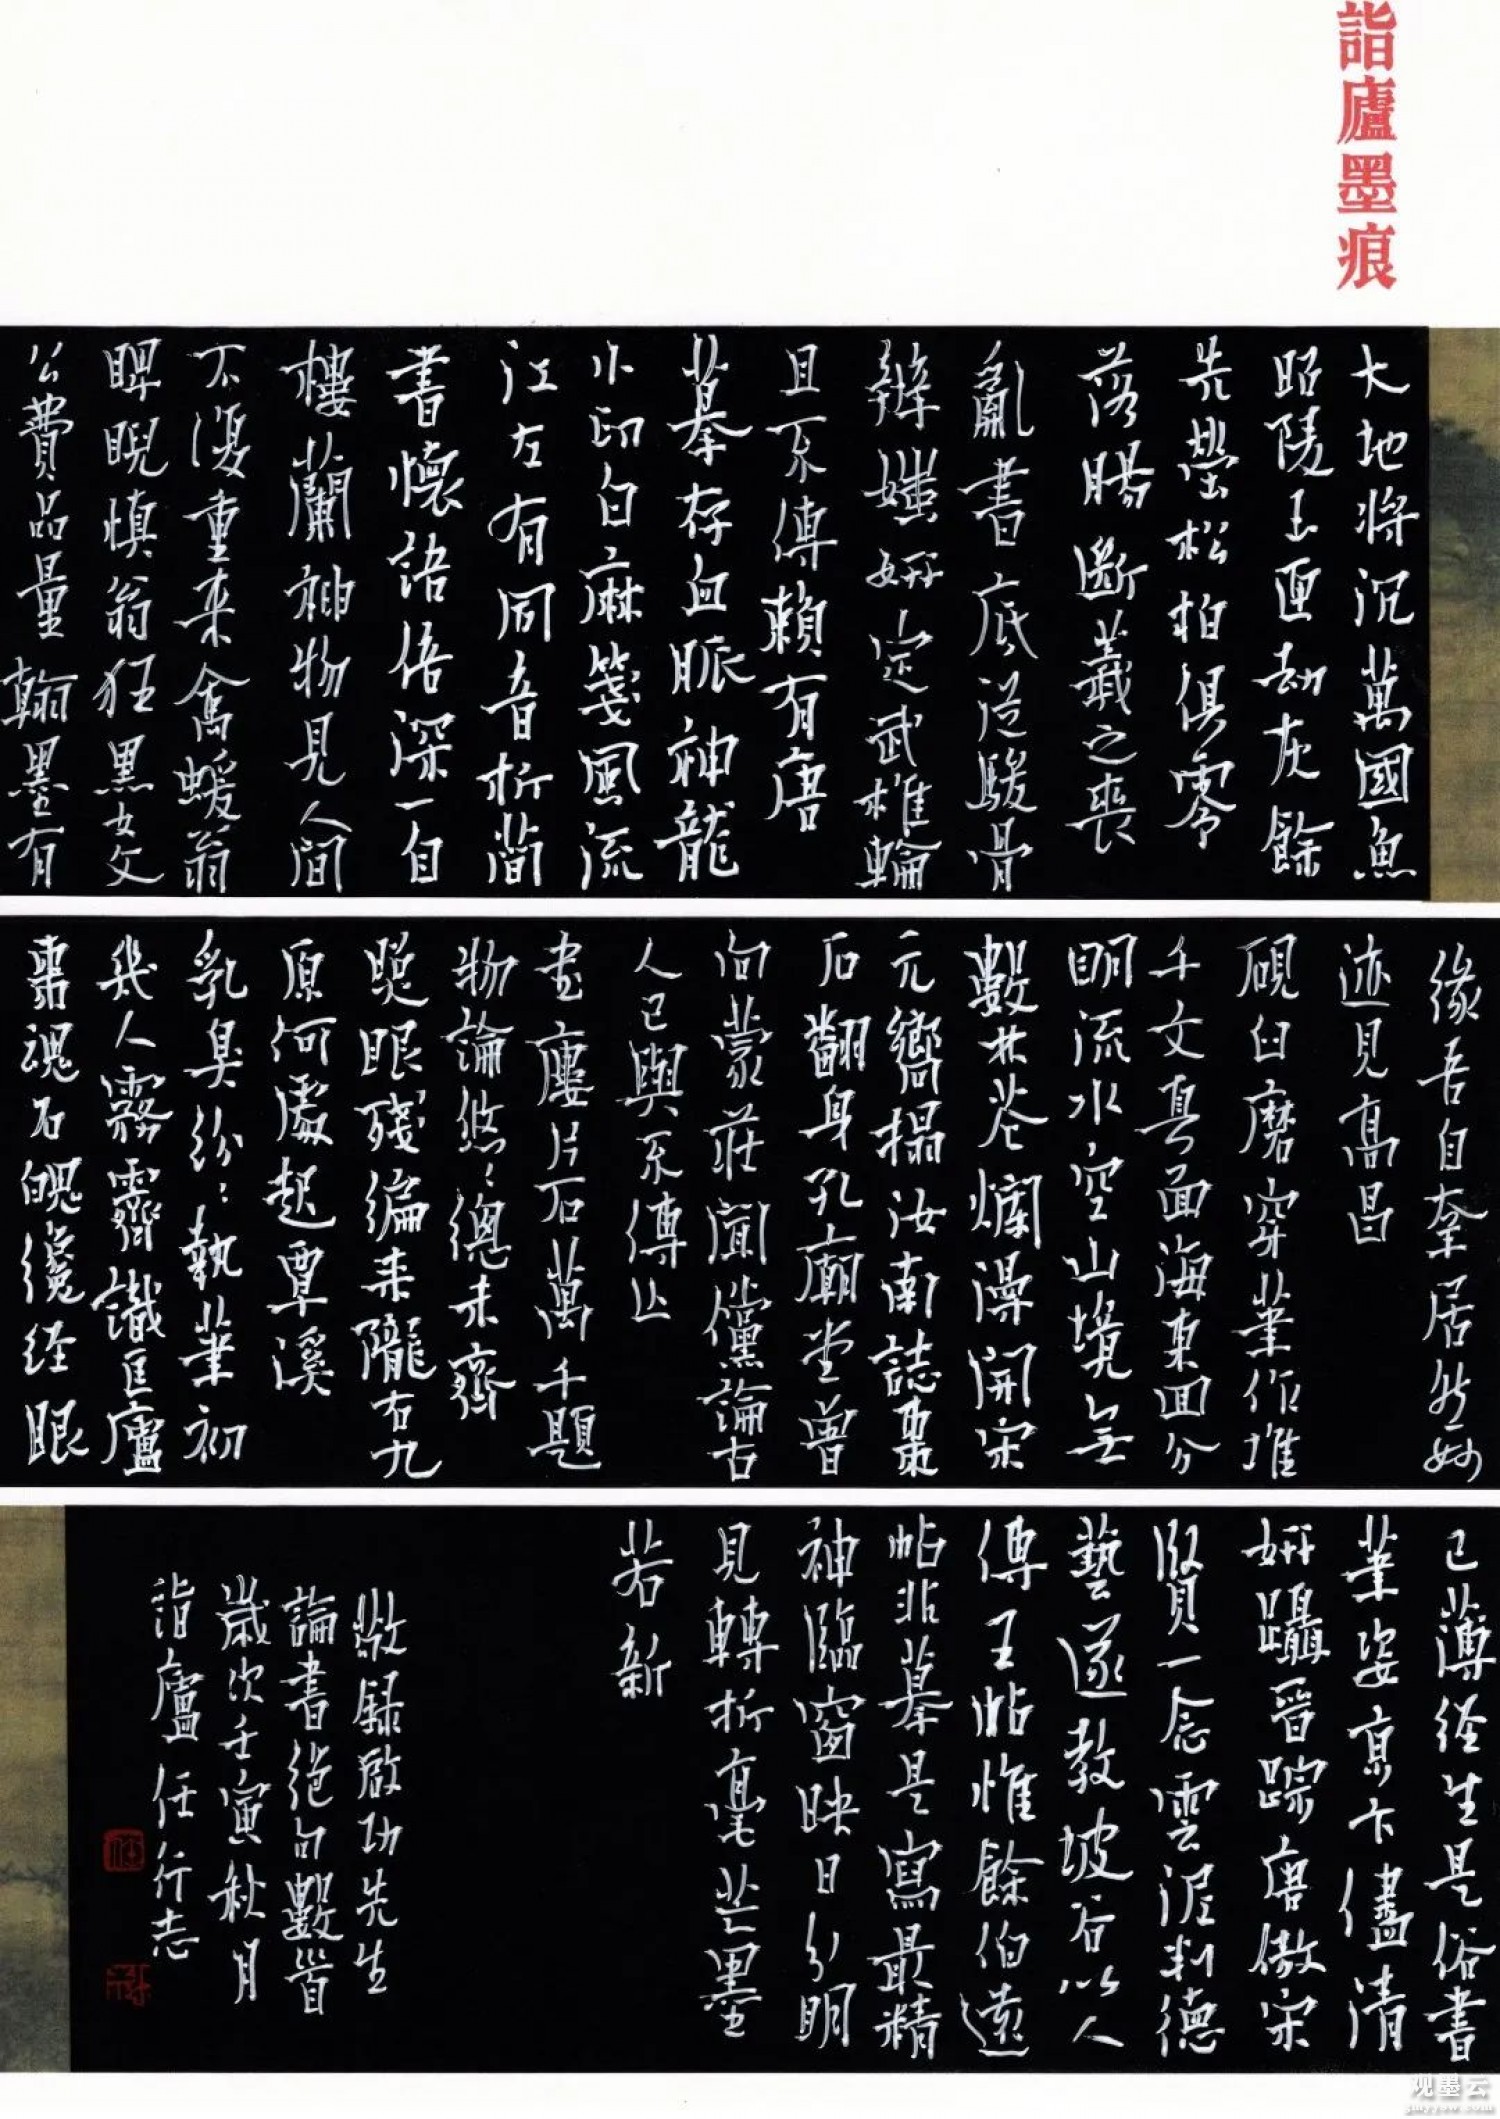 詣廬墨痕
大地將沉萬國魚
昭陵玉匣劫灰餘
先塋松柏俱零
落腸斷羲之喪
亂書底從駿骨
辨媸妍定武椎輪
且不傳賴有唐
摹存血脈神龍
小印白麻箋風流
江左有同音折簡
書懷語倍深一自
樓蘭神物見人間
不復重来禽蝯翁
睥睨慎翁狂黑女文
公費品量翰墨有
緣吾自幸居然妙
迹見高昌
硯臼磨穿筆作堆
千文真面海東回分
明流水空山境無
數林花爛漫開宋
元嚮搨汝南誌棗
石翻身孔廟堂曾
向蒙莊聞儻論古
人已與不傳亡
書樓片石萬千題
物論悠〻總未齊
照眼殘編来隴右九
原何處起覃溪
乳臭紛〻執筆初
幾人霧霽識匡廬
棗魂石魄纔經眼
已薄經生是俗書
筆姿京卞儘清
妍躡晉踪唐傲宋
賢一念雲泥判德
藝遂教坡谷以人
傳王帖惟餘伯遠
帖非摹是寫最精
神臨窗映日分明
見轉折毫芒墨
若新
敬錄啟功先生
論書絕句數首
歲次壬寅秋月
詣廬任行志
观墨云